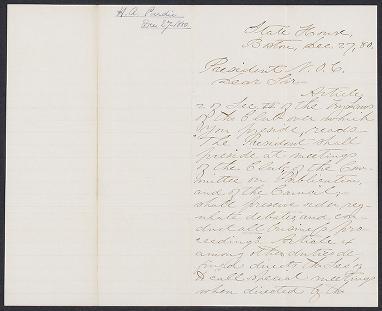 H. A. Purdie
Dec 27, 1880.
State House,
Boston, Dec. 27, 80.
President N. O. C.
Dear Sir-
Article
2 of Sec. of the bylaws
of the Club over which
you preside, reads-
"The President shall
preside at meetings
of the Club, of the Com-
mittee on Publication,
and of the Council;
shall preserve order, reg-
ulate debates, and con-
duct all business pro-
ceedings". Article 4
among other duties de-
directs the Sec. to
call special meetings
when directed by the